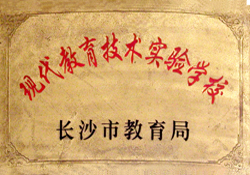 现代教育技术实验学校
长沙市教育局